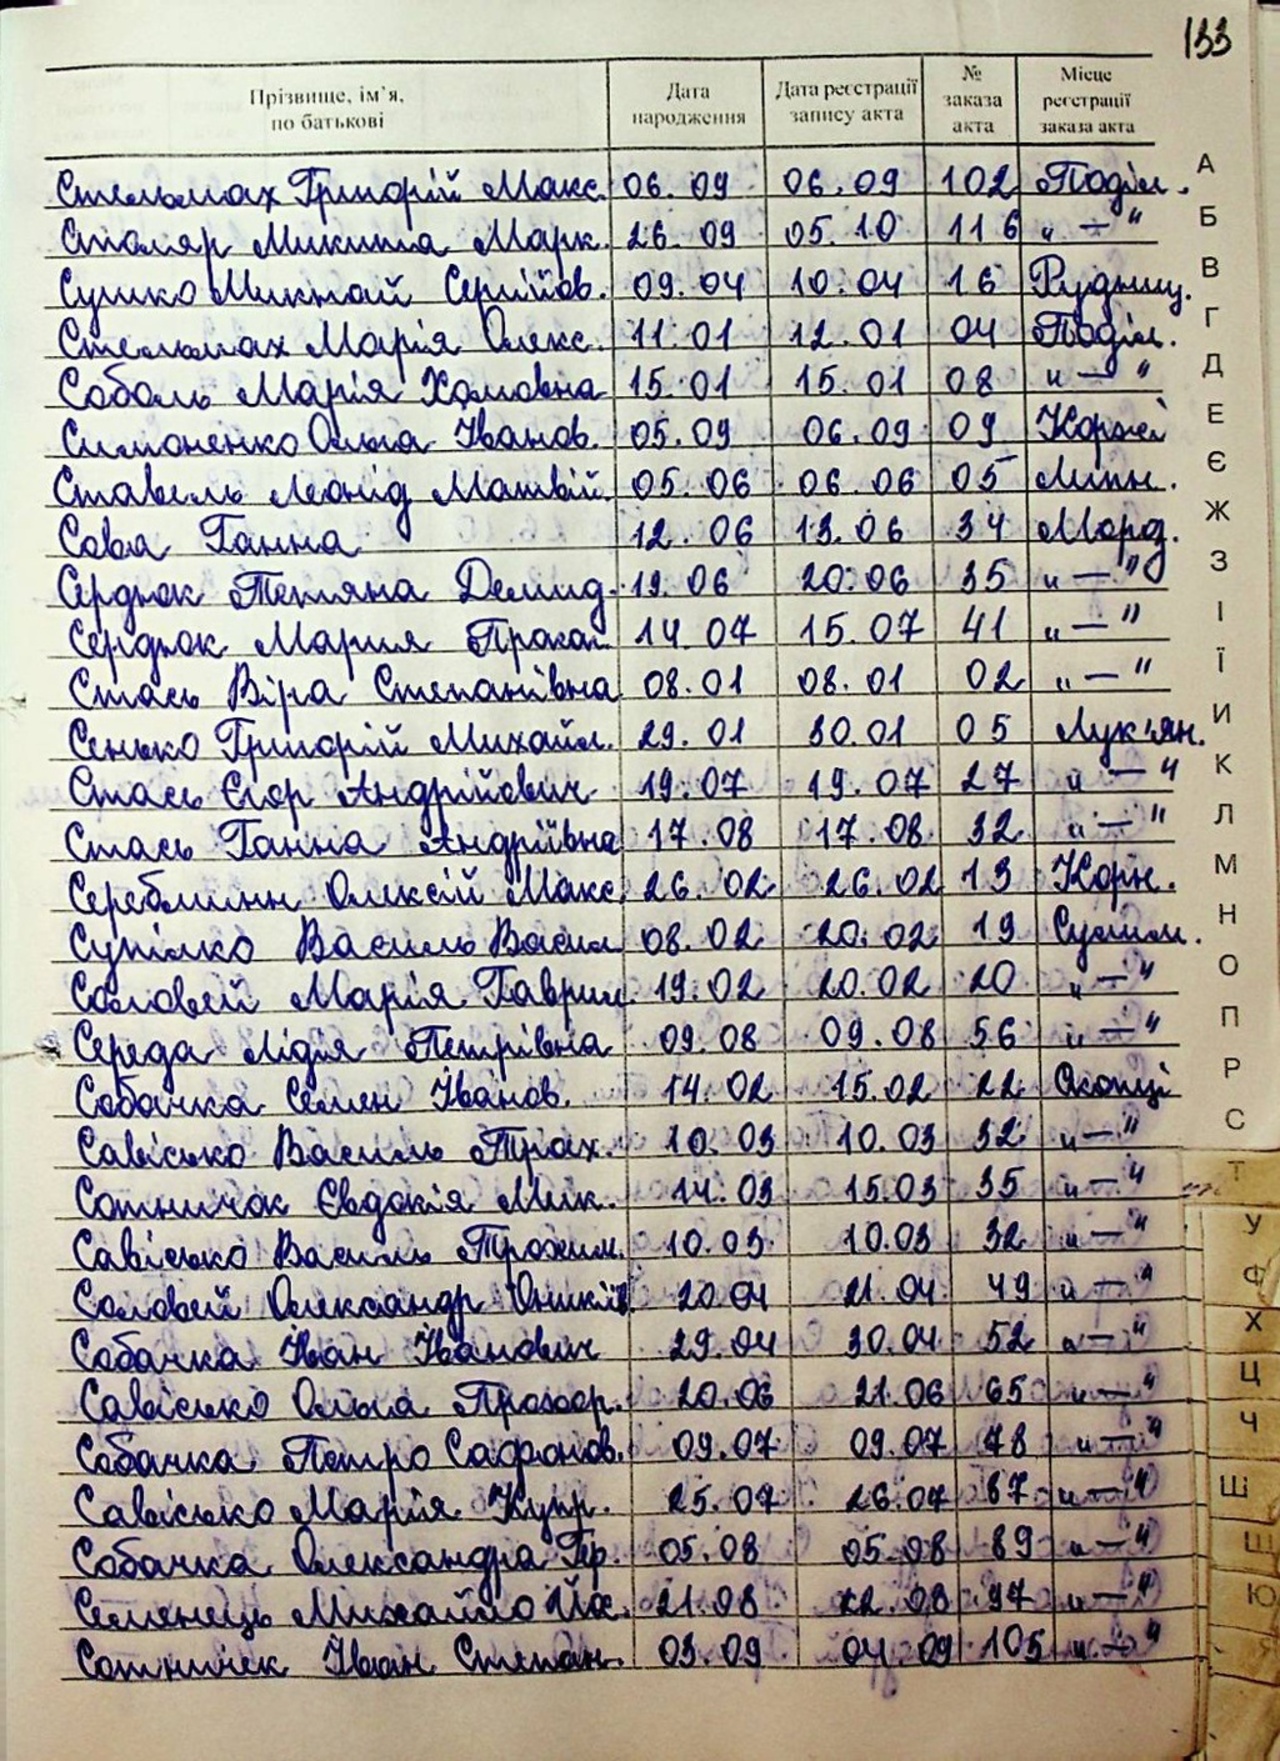 133
Прізвище, ім'я, по батькові Дата народження Дата реєстрації запису акта № заказа акта Місце реєстрації заказа акта
Стельмах Григорій Макс. 06.09 06.09 102 Поділ.
Столяр Микита Марк. 26.09 05.10 116 "—"
Сушко Микнай Сергійов. 09.04 10.04 16 Рудниц.
Стельмах Марія Олекс. 11.01 12.01 04 Поділ.
Соболь Марія Хомовна 15.01 15.01 08 "—"
Симоненко Ольга Іванов. 05.09 06.09 09 Коржі
Ставель Леонід Матвій. 05.06 06.06 05 Липн.
Сова Ганна 12.06 13.06 34 Морд.
Сердюк Тетяна Демид. 19.06 20.06 35 "—"
Сердюк Мария Прокоп. 14.07 15.07 41 "—"
Стась Віра Степанівна 08.01 08.01 02 "—"
Сенько Григорій Михайл. 29.01 30.01 05 Лук'ян.
Стась Єгор Андрійович 19.07 19.07 27 "—"
Стась Ганна Андріївна 17.08 17.08 32 "—"
Олексій Макс. 26.02 26.02 13 Корн.
Супілко Василь Васил 08.02 20.02 19 Сулим.
Соловей Марія Гаврил. 19.02 20.02 20 "—"
Середа Лідія Петрівна 09.08 09.08 56 "—"
Собачка Семен Іванов. 14.02 15.02 22 Скопці
Савісько Василь Трох. 10.03 10.03 32 "—"
Сотничок Євдокія Мик. 14.03 15.03 35 "—"
Савісько Василь Трохим. 10.03 10.03 32 "—"
Соловей Олександр Оникіїв. 20.04 21.04 49 "—"
Собачка Іван Іванович 29.04 30.04 52 "—"
Савісько Ольга Прохор. 20.06 21.06 65 "—"
Собачка Петро Сафонов. 09.07 09.07 78 "—"
Савісько Марія Купр. 25.07 26.07 87 "—"
Собачка Олександра Гр. 05.08 05.08 89 "—"
Семенець Михайло 21.08 22.08 97 "—"
Сотничек Іван Степан. 03.09 04.09 105 "—"
А
Б
В
Г
Д
Е
Є
Ж
З
І
Ї
И
К
Л
М
Н
О
П
Р
С
Т
У
Ф
Х
Ц
Ч
Ш
Щ
Ю
Я